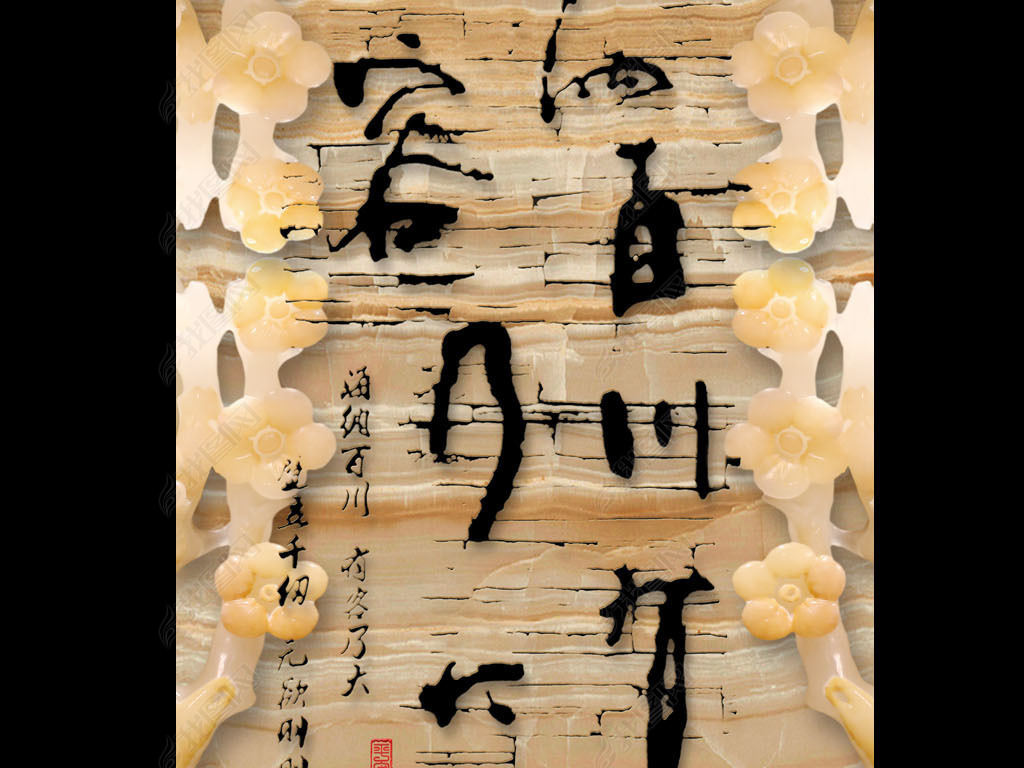 纳百川有
容乃大
海纳百川 有容乃大
壁立千仞 无欲则